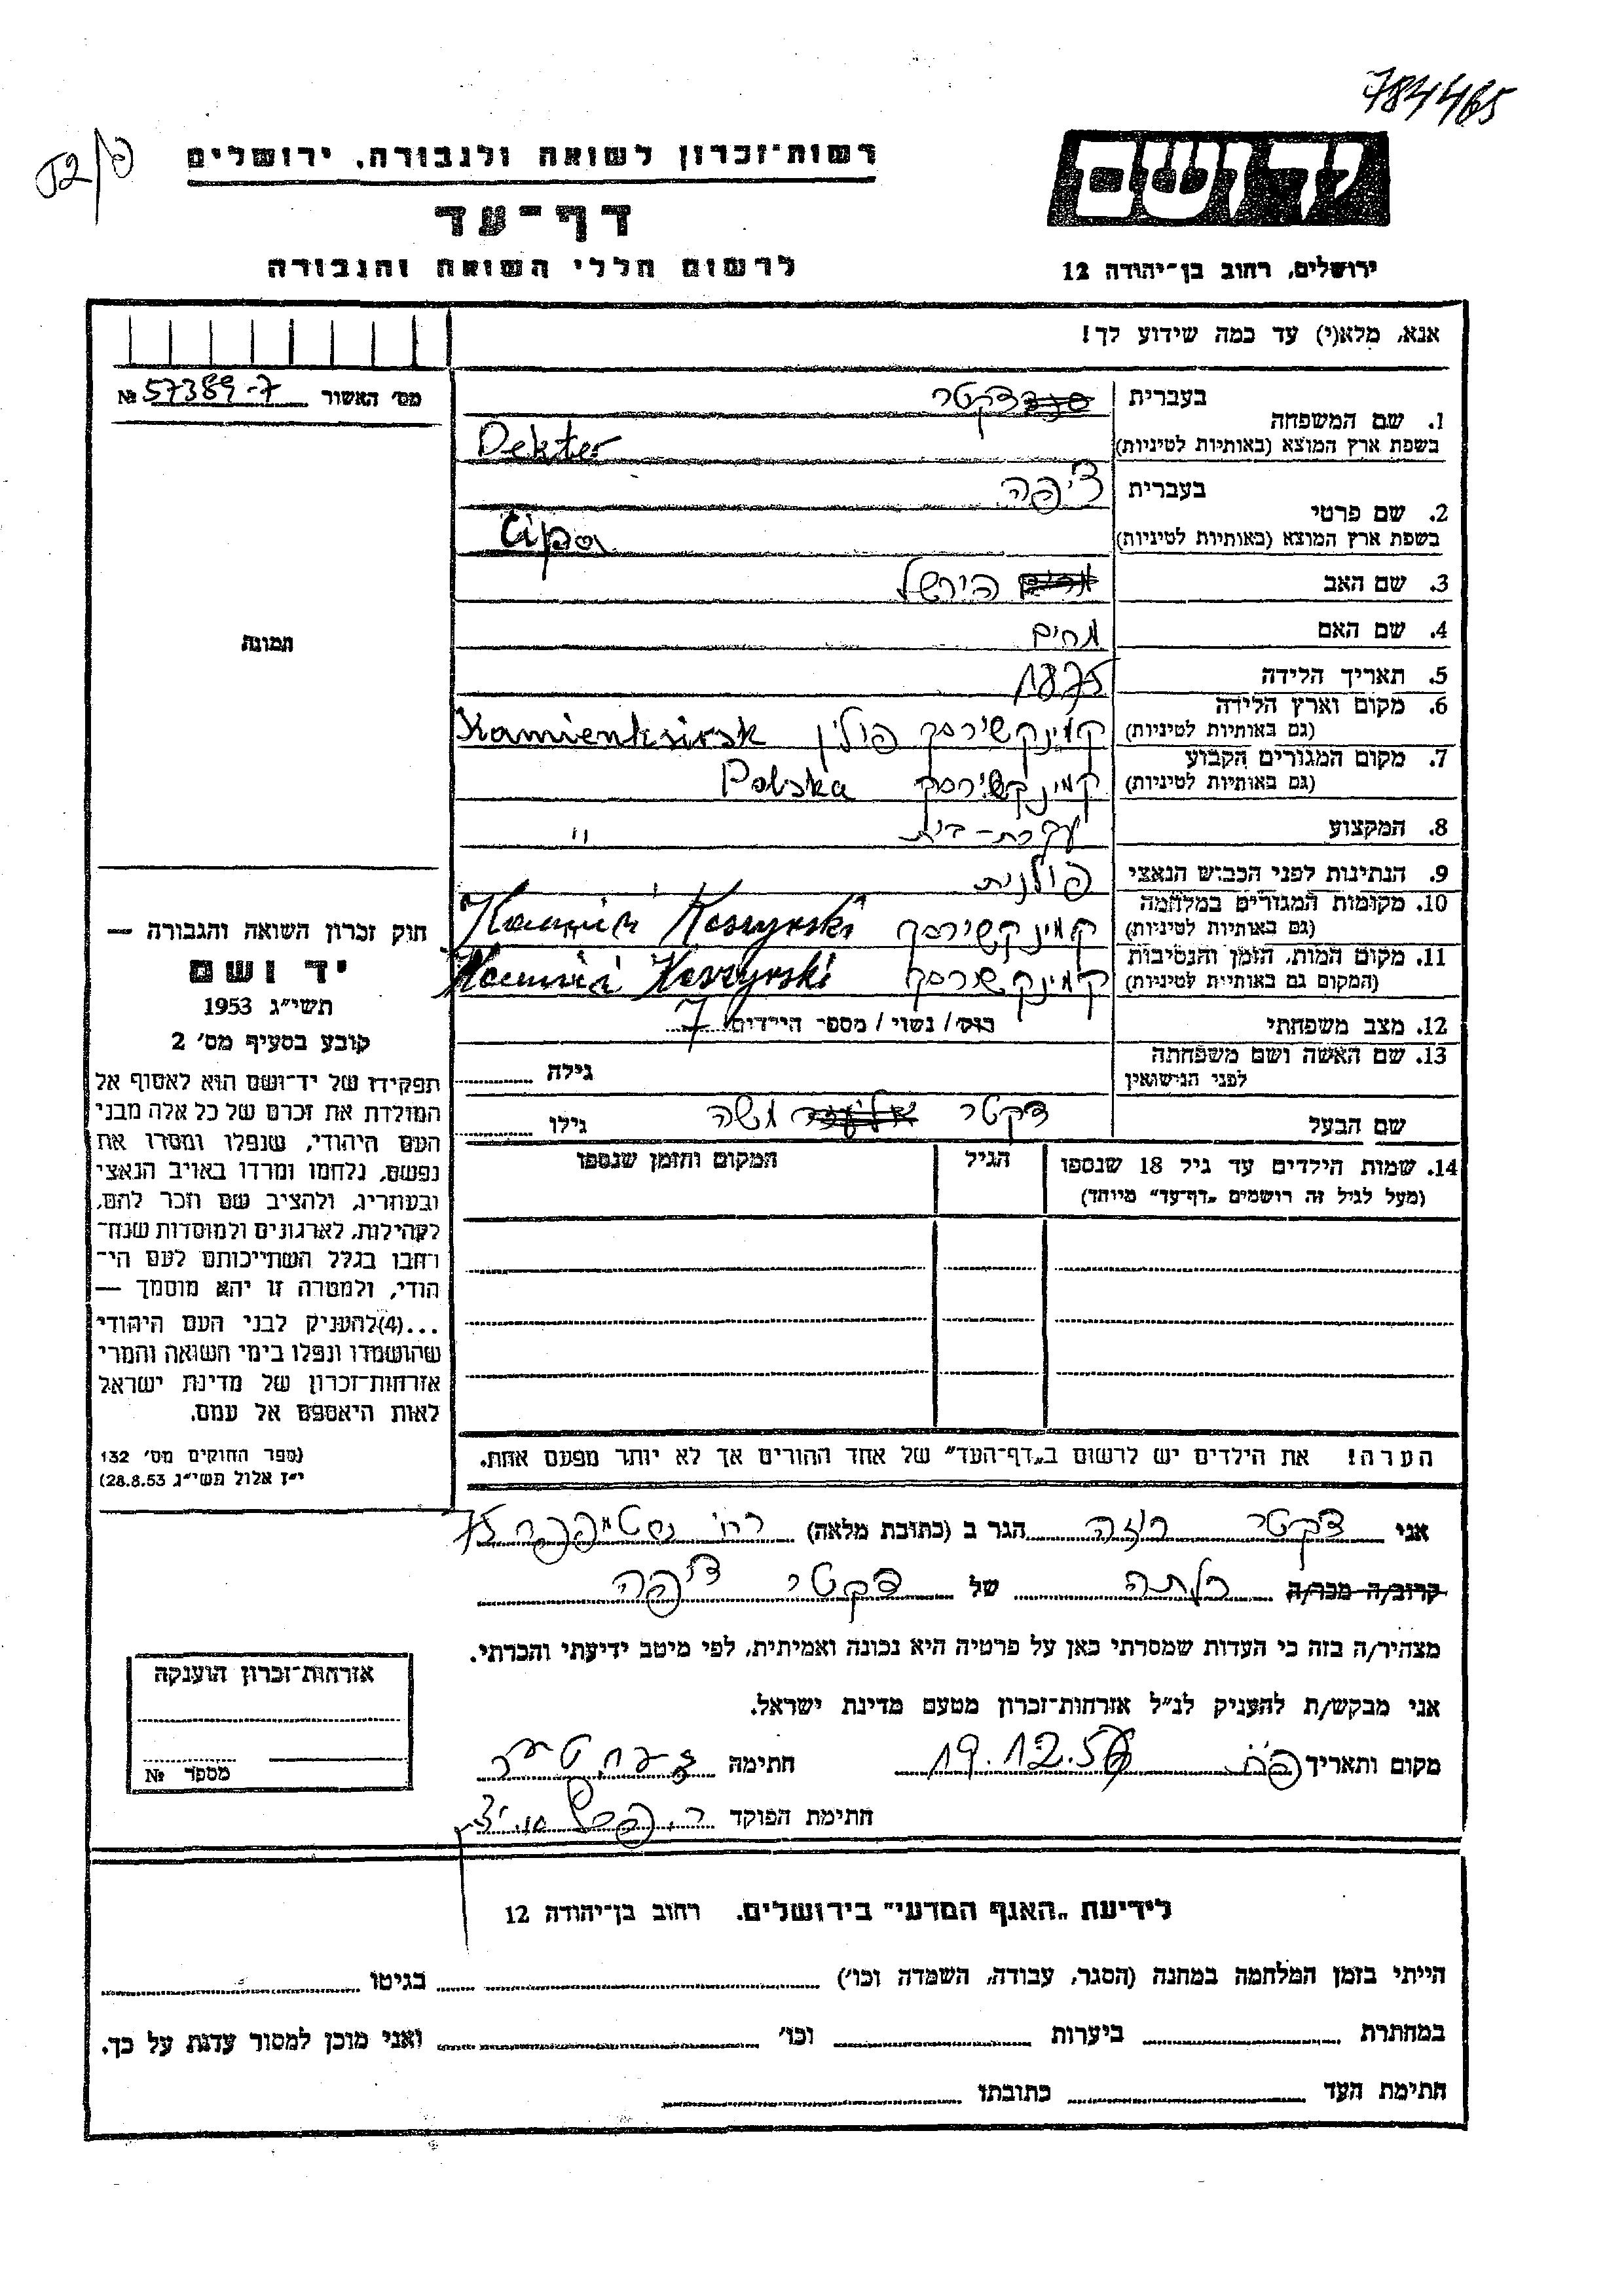 784465
52/פ
רשות־זכרון לשואה ולגבורה, ירושלים
דף־עד
לרשום חללי השואה והגבורה
יד ושם
ירושלים, רחוב בן־יהודה 12
אנא, מלא(י) עד כמה שידוע לך!
מס׳ האשור № 57389-7
תמונה
1. שם המשפחה
בעברית דקטר
בשפת ארץ המוצא (באותיות לטיניות) Dekter
2. שם פרטי
בעברית ציפה
בשפת ארץ המוצא (באותיות לטיניות) Cipa
3. שם האב הירשל
4. שם האם
5. תאריך הלידה 1875
6. מקום וארץ הלידה
(גם באותיות לטיניות) קמינקשירסק פולין Kamienksirsk
7. מקום המגורים הקבוע
(גם באותיות לטיניות) קמינקשירסק Polska
8. המקצוע עקרת-בית "
9. הנתינות לפני הכבוש הנאצי פולנית
10. מקומות המגורים במלחמה
(גם באותיות לטיניות) קמינקשירסק Kamień Koszyrski
11. מקום המות, הזמן והנסיבות
(המקום גם באותיות לטיניות) קמינקשירסק Kamień Koszyrski
12. מצב משפחתי רוק/ נשוי/ מספר הילדים 7
13. שם האשה ושם משפחתה
לפני הנישואין
גילה
שם הבעל דקטר משה
גילו
14. שמות הילדים עד גיל 18 שנספו
(מעל לגיל זה רושמים „דף־עד״ מיוחד)
הגיל
המקום והזמן שנספו
הערה! את הילדים יש לרשום ב„דף־העד״ של אחד ההורים אך לא יותר מפעם אחת.
חוק זכרון השואה והגבורה —
יד ושם
תשי״ג 1953
קובע בסעיף מס׳ 2
תפקידו של יד־ושם הוא לאסוף אל
המולדת את זכרם של כל אלה מבני
העם היהודי, שנפלו ומסרו את
נפשם, נלחמו ומרדו באויב הנאצי
ובעוזריו, ולהציב שם וזכר להם,
לקהילות, לארגונים ולמוסדות שנח־
רבו בגלל השתייכותם לעם הי־
הודי, ולמטרה זו יהא מוסמך —
...(4)להעניק לבני העם היהודי
שהושמדו ונפלו בימי השואה והמרי
אזרחות־זכרון של מדינת ישראל
לאות היאספם אל עמם.
(ספר החוקים מס׳ 132
י״ז אלול תשי״ג 28.8.53)
אני דקטר רוזה הגר ב (כתובת מלאה) רח׳
קרוב/ה מכר/ה כלתה של דקטר ציפה
מצהיר/ה בזה כי העדות שמסרתי כאן על פרטיה היא נכונה ואמיתית, לפי מיטב ידיעתי והכרתי.
אני מבקש/ת להעניק לנ״ל אזרחות־זכרון מטעם מדינת ישראל.
מקום ותאריך 19.12.56 חתימה
חתימת הפוקד
אזרחות־זכרון הוענקה
מספר №
לידיעת „האגף המדעי״ בירושלים. רחוב בן־יהודה 12
הייתי בזמן המלחמה במחנה (הסגר, עבודה, השמדה וכו׳) בגיטו
במחתרת ביערות וכו׳ ואני מוכן למסור עדות על כך.
חתימת העד כתובתו